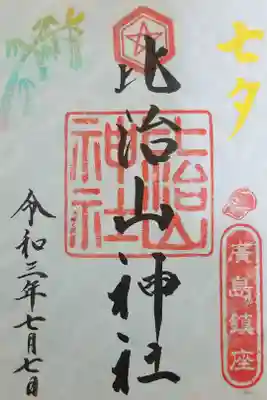 七夕
比治山神社
比治山神社
廣島鎮座
令和三年七月七日